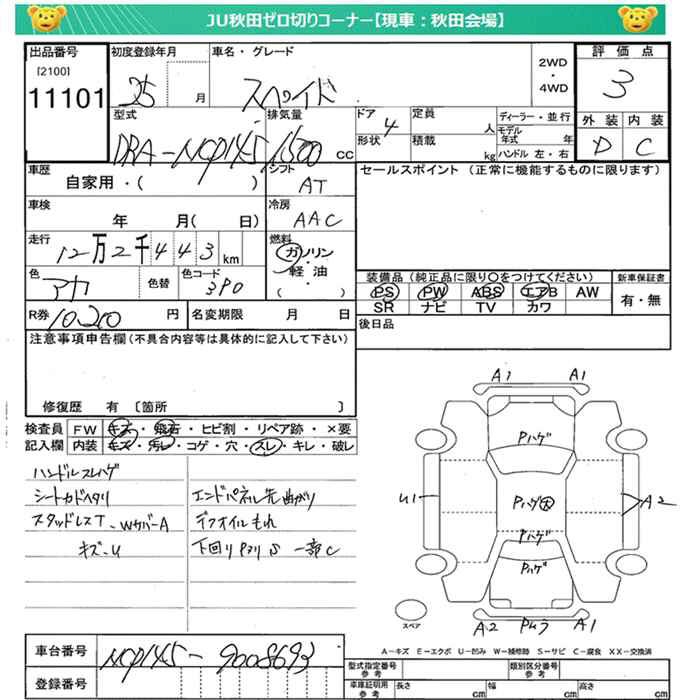 JU秋田ゼロ切りコーナー【現車：秋田会場】
出品番号
[2100]
11101
初度登録年月
25 月
車名・グレード
スペイド
2WD
・
4WD
評価点
3
型式
DBA-NCP145
排気量
1500 CC
ドア
4
形状
定員
人
積載
kg
ディーラー・並行
モデル年式 年
ハンドル 左・右
外装 内装
D C
車歴
自家用・( )
シフト
AT
セールスポイント（正常に機能するものに限ります）
車検
年 月( 日)
冷房
AAC
走行
12万2千443km
燃料
ガソリン
・
軽油
・
( )
色
アカ
色替
色コード
3P0
装備品（純正品に限り○をつけてください）
PS PW ABS エアB AW
SR ナビ TV カワ
新車保証書
有・無
R券 10210 円
名変期限 月 日
後日品
注意事項申告欄(不具合内容等は具体的に記入して下さい)
修復歴 有 〔箇所 〕
検査員 FW キズ・飛石・ヒビ割・リペア跡・×要
記入欄 内装 キズ・汚レ・コゲ・穴・スレ・キレ・破レ
ハンドルスレハゲ
シートカドヘタリ
スタッドレスT-WカバーA
キズ-U
エンドパネル先曲がり
デフオイルもれ
下回りPヌリS 一部C
A1 A1
Pハゲ
U1
Pハゲ
A2
Pハゲ
Pハゲ
スペア
A2 Pムラ A1
A-キズ E-エクボ U-凹み W-補修跡 S-サビ C-腐食 XX-交換済
車台番号
NCP145-9008693
登録番号
型式指定番号
参考
類別区分番号
参考
車庫証明用
参考
長さ cm
幅 cm
高さ cm